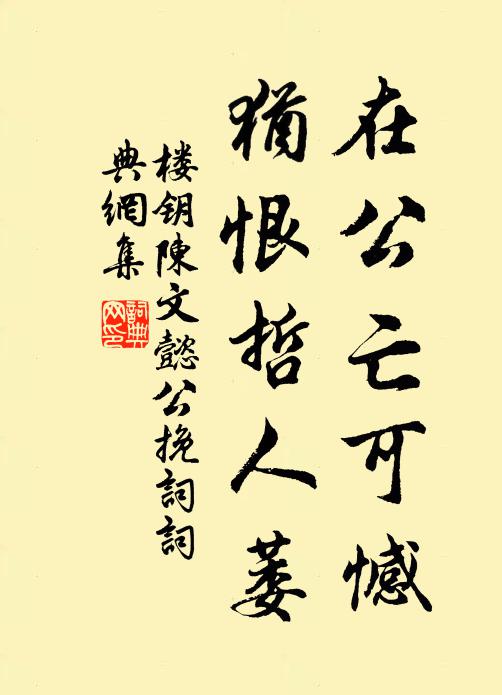 在公亡可憾
猶恨哲人萎
楼钥陳文懿公挽詞詞
典網集
詞典
网印